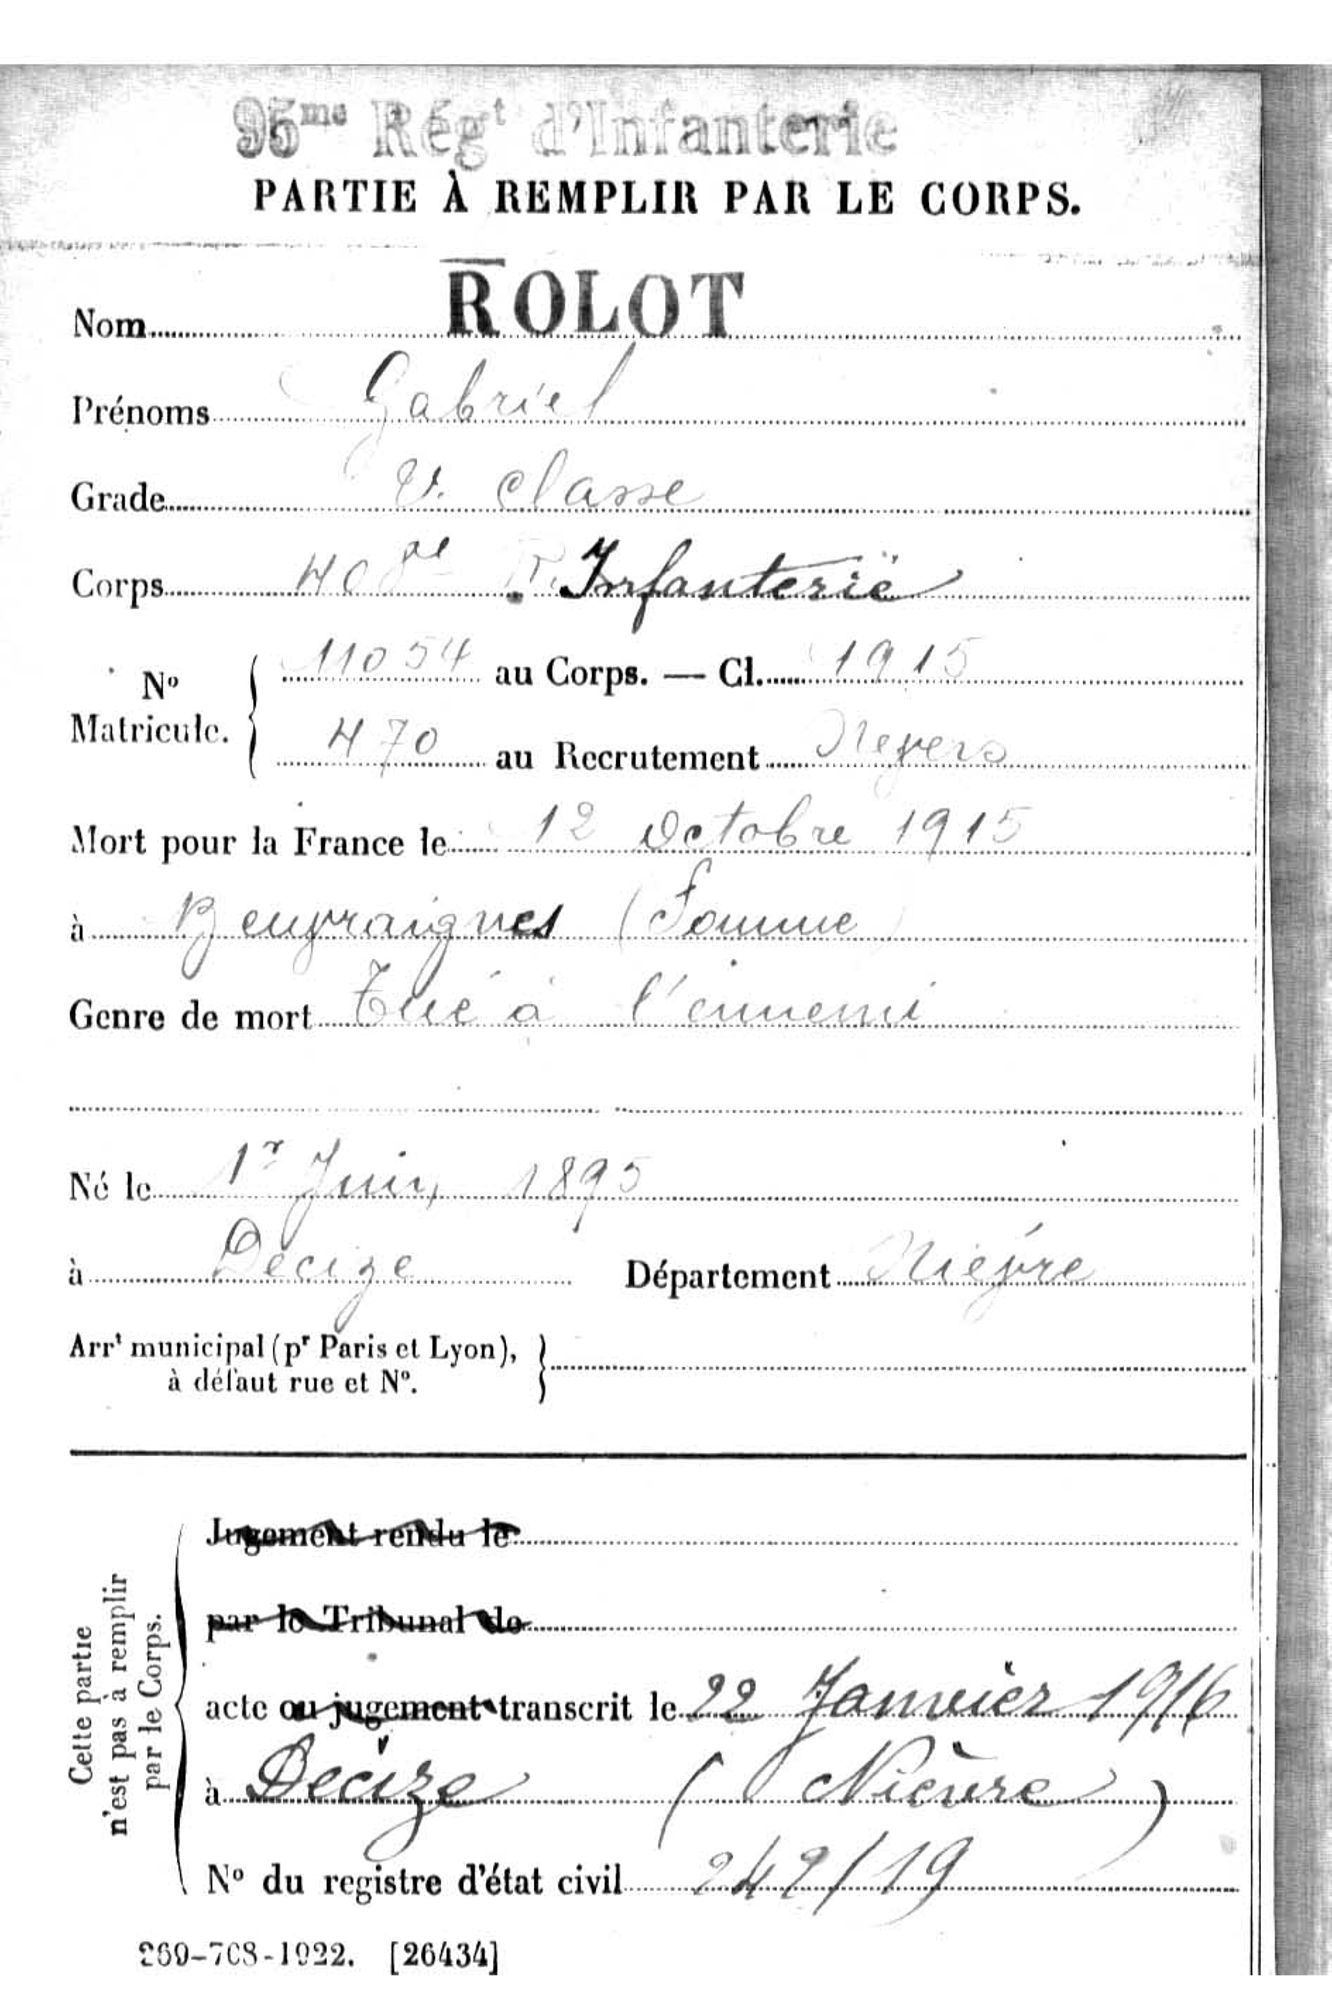 95me Régt d'Infanterie
PARTIE À REMPLIR PAR LE CORPS.
Nom ROLOT
Prénoms Gabriel
Grade 2e classe
Corps 408me R. Infanterie
No Matricule. 11054 au Corps. — Cl. 1915
470 au Recrutement Nevers
Mort pour la France le 12 Octobre 1915
à Beuvraignes (Somme)
Genre de mort Tué à l'ennemi
Né le 1r Juin 1895
à Decize Département Nièvre
Arrt municipal (pr Paris et Lyon),
à défaut rue et No.
Cette partie
n'est pas à remplir
par le Corps.
Jugement rendu le
par le Tribunal de
acte ou jugement transcrit le 22 Janvier 1916
à Decize (Nièvre)
No du registre d'état civil 242/19
269-708-1922. [26434]